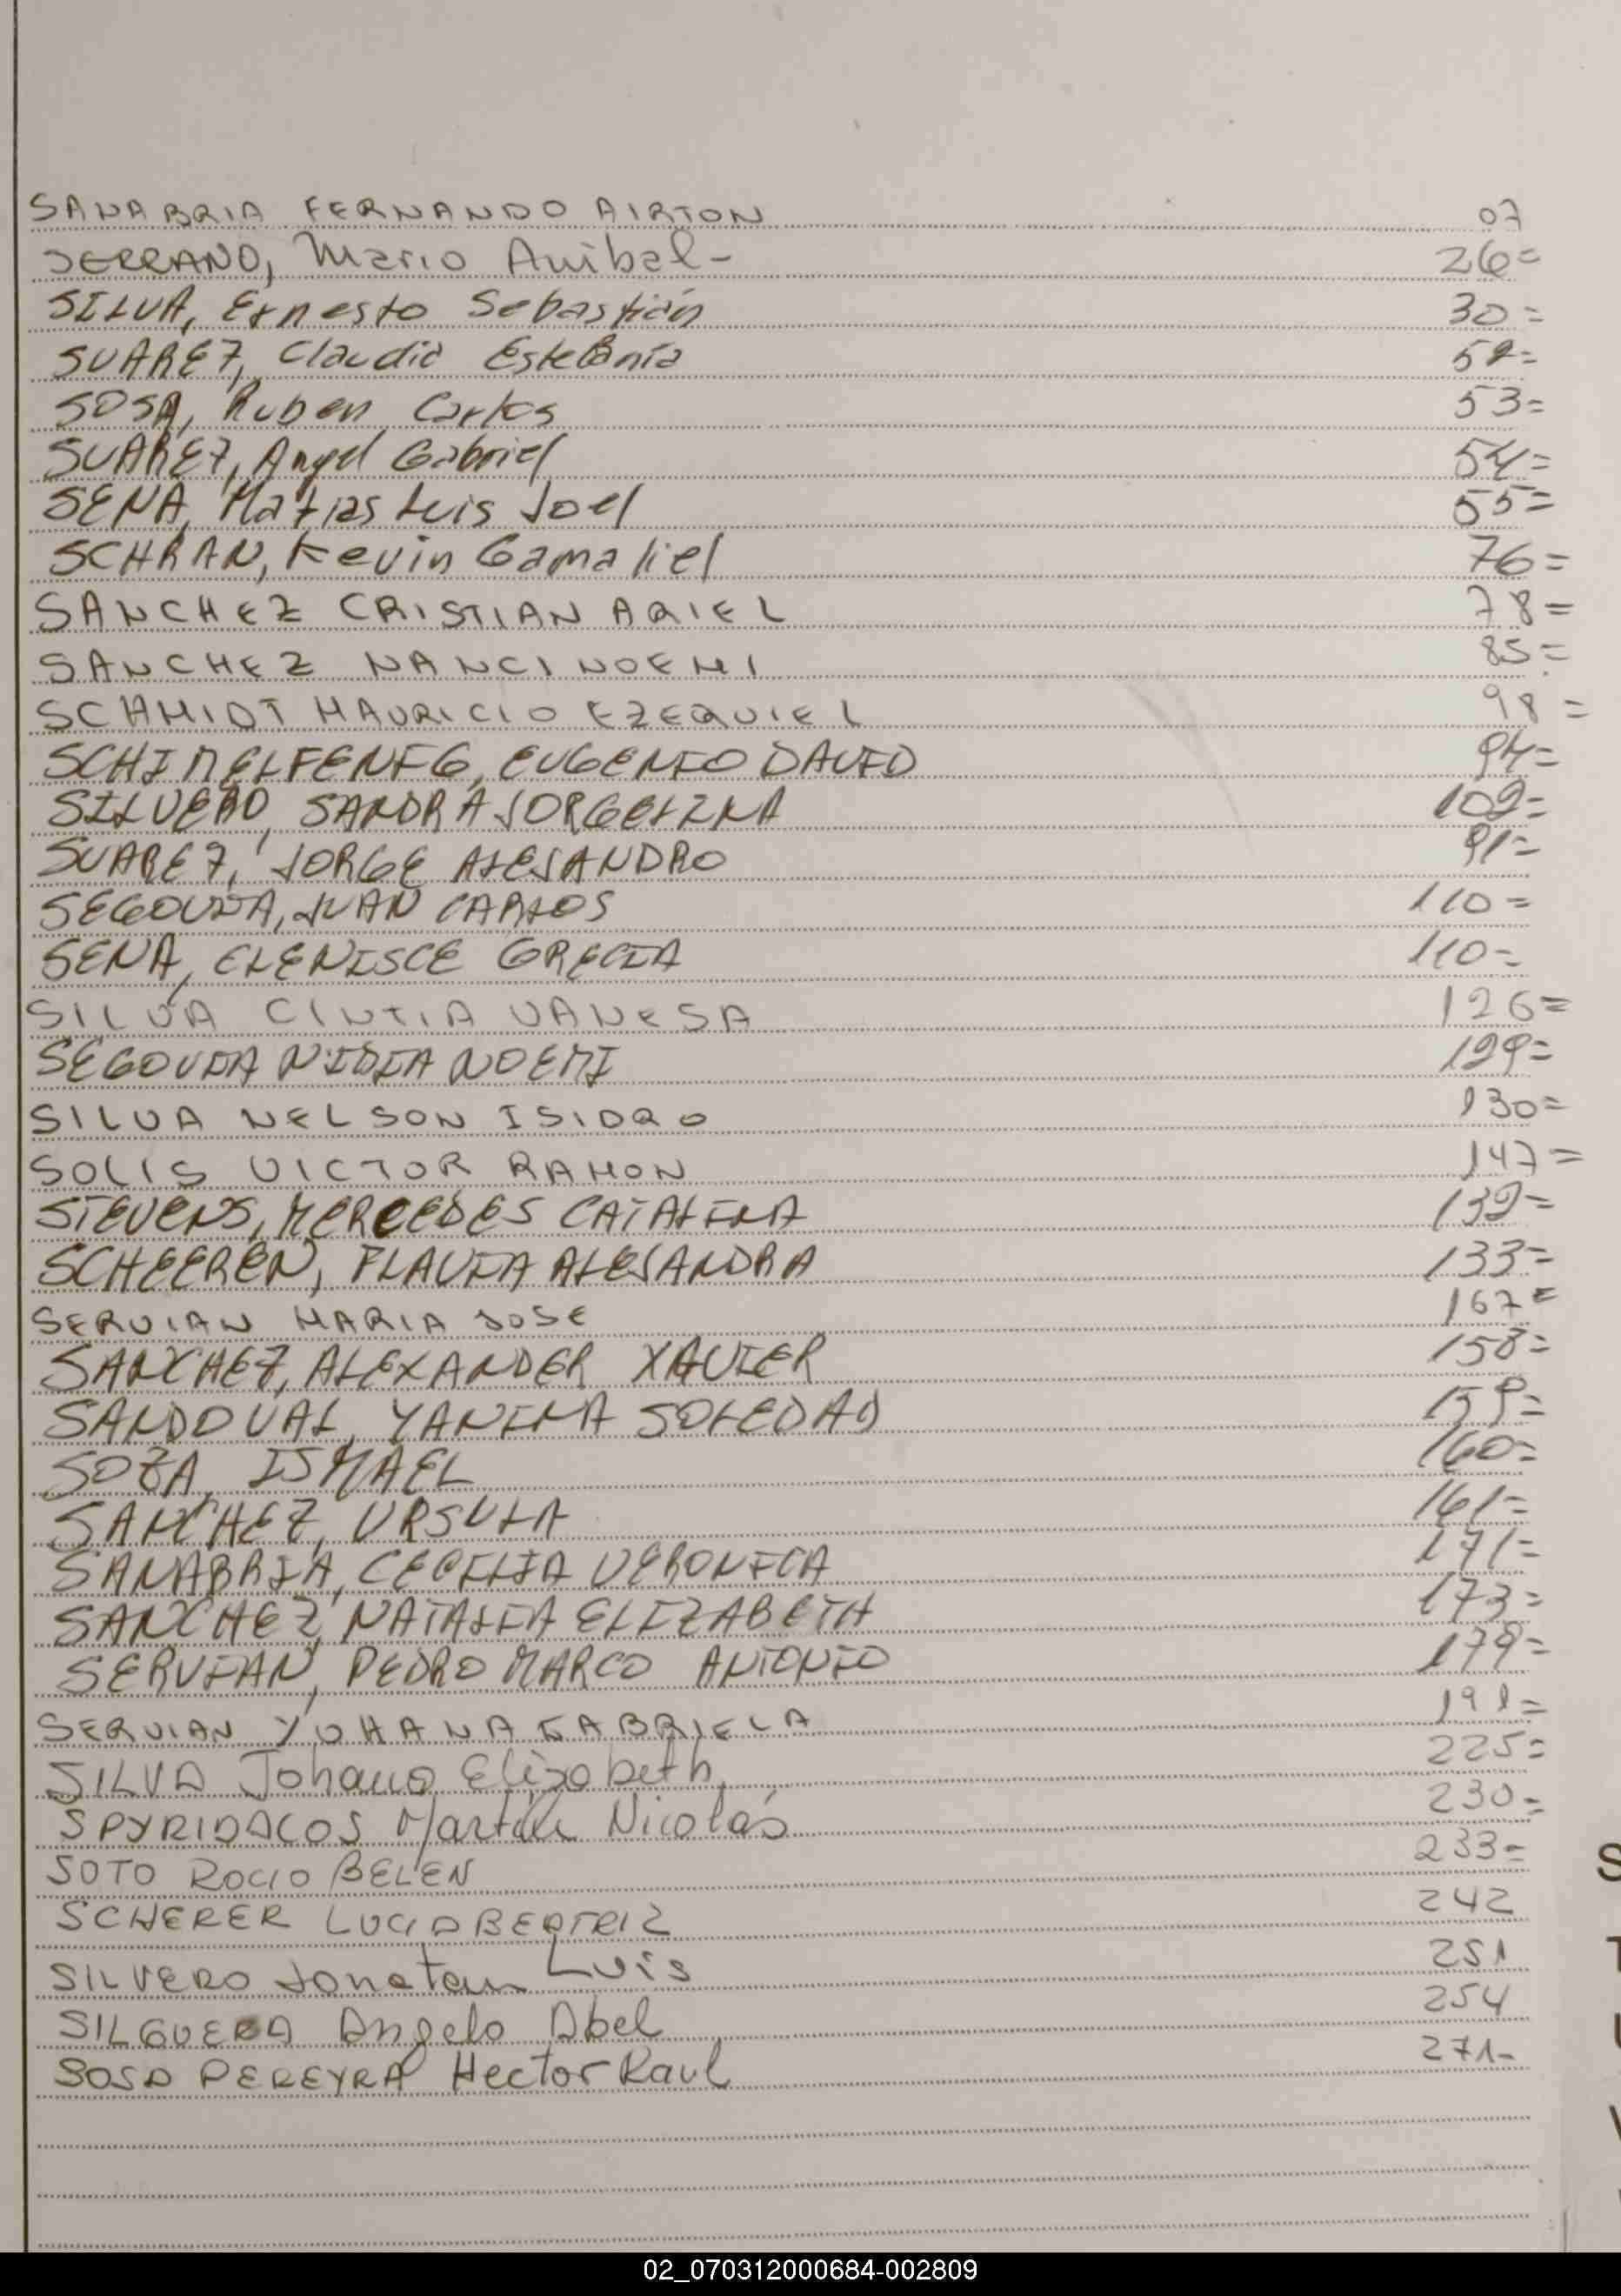 SANABRIA FERNANDO AIRTON 07
SERRANO, Mario Anibal- 26=
SILVA, Ernesto Sebastián 30=
SUAREZ, Claudia Estefanía
SOSA, Ruben Carlos 53=
SUAREZ, Angel Gabriel 54=
SENA, Matias Luis Joel 55=
SCHRAN, Kevin Gamaliel 76=
SANCHEZ CRISTIAN ARIEL 78=
SANCHEZ NANCI NOEMI 85=
SCHMIDT MAURICIO EZEQUIEL 98=
SCHIMELFENIG, EUGENIO DAVID 94=
SILVERO, SANDRA JORGELINA 109=
SUAREZ, JORGE ALEJANDRO 91=
SEGOVIA, JUAN CARLOS 110=
SENA, CLENISCE GRECIA 110=
SILVA CINTIA VANESA 126=
SEGOVIA NIDIA NOEMI 129=
SILVA NELSON ISIDRO 130=
SOLIS VICTOR RAMON 147=
STEVENS, MERCEDES CATALINA 139=
SCHEEREN, FLAVIA ALEJANDRA 133=
SERVIAN MARIA JOSE 167=
SANCHEZ, ALEXANDER XAVIER 158=
SANDOVAL, YANINA SOLEDAD 159=
SOZA, ISMAEL 160=
SANCHEZ, URSULA 161=
SANABRIA, CECILIA VERONICA 171=
SANCHEZ, NATALIA ELIZABETH 173=
SERVIAN, PEDRO MARCO ANTONIO 179=
SERVIAN YOHANA GABRIELA 191=
SILVA Johana Elizabeth, 225=
SPYRIDACOS Martín Nicolás 230=
SOTO ROCIO BELEN 233=
SCHERER LUCIA BEATRIZ 242
SILVERO Jonatan Luis 251
SILGUERA Angelo Abel 254
SOSA PEREYRA Hector Raul 271-
S
02_070312000684-002809